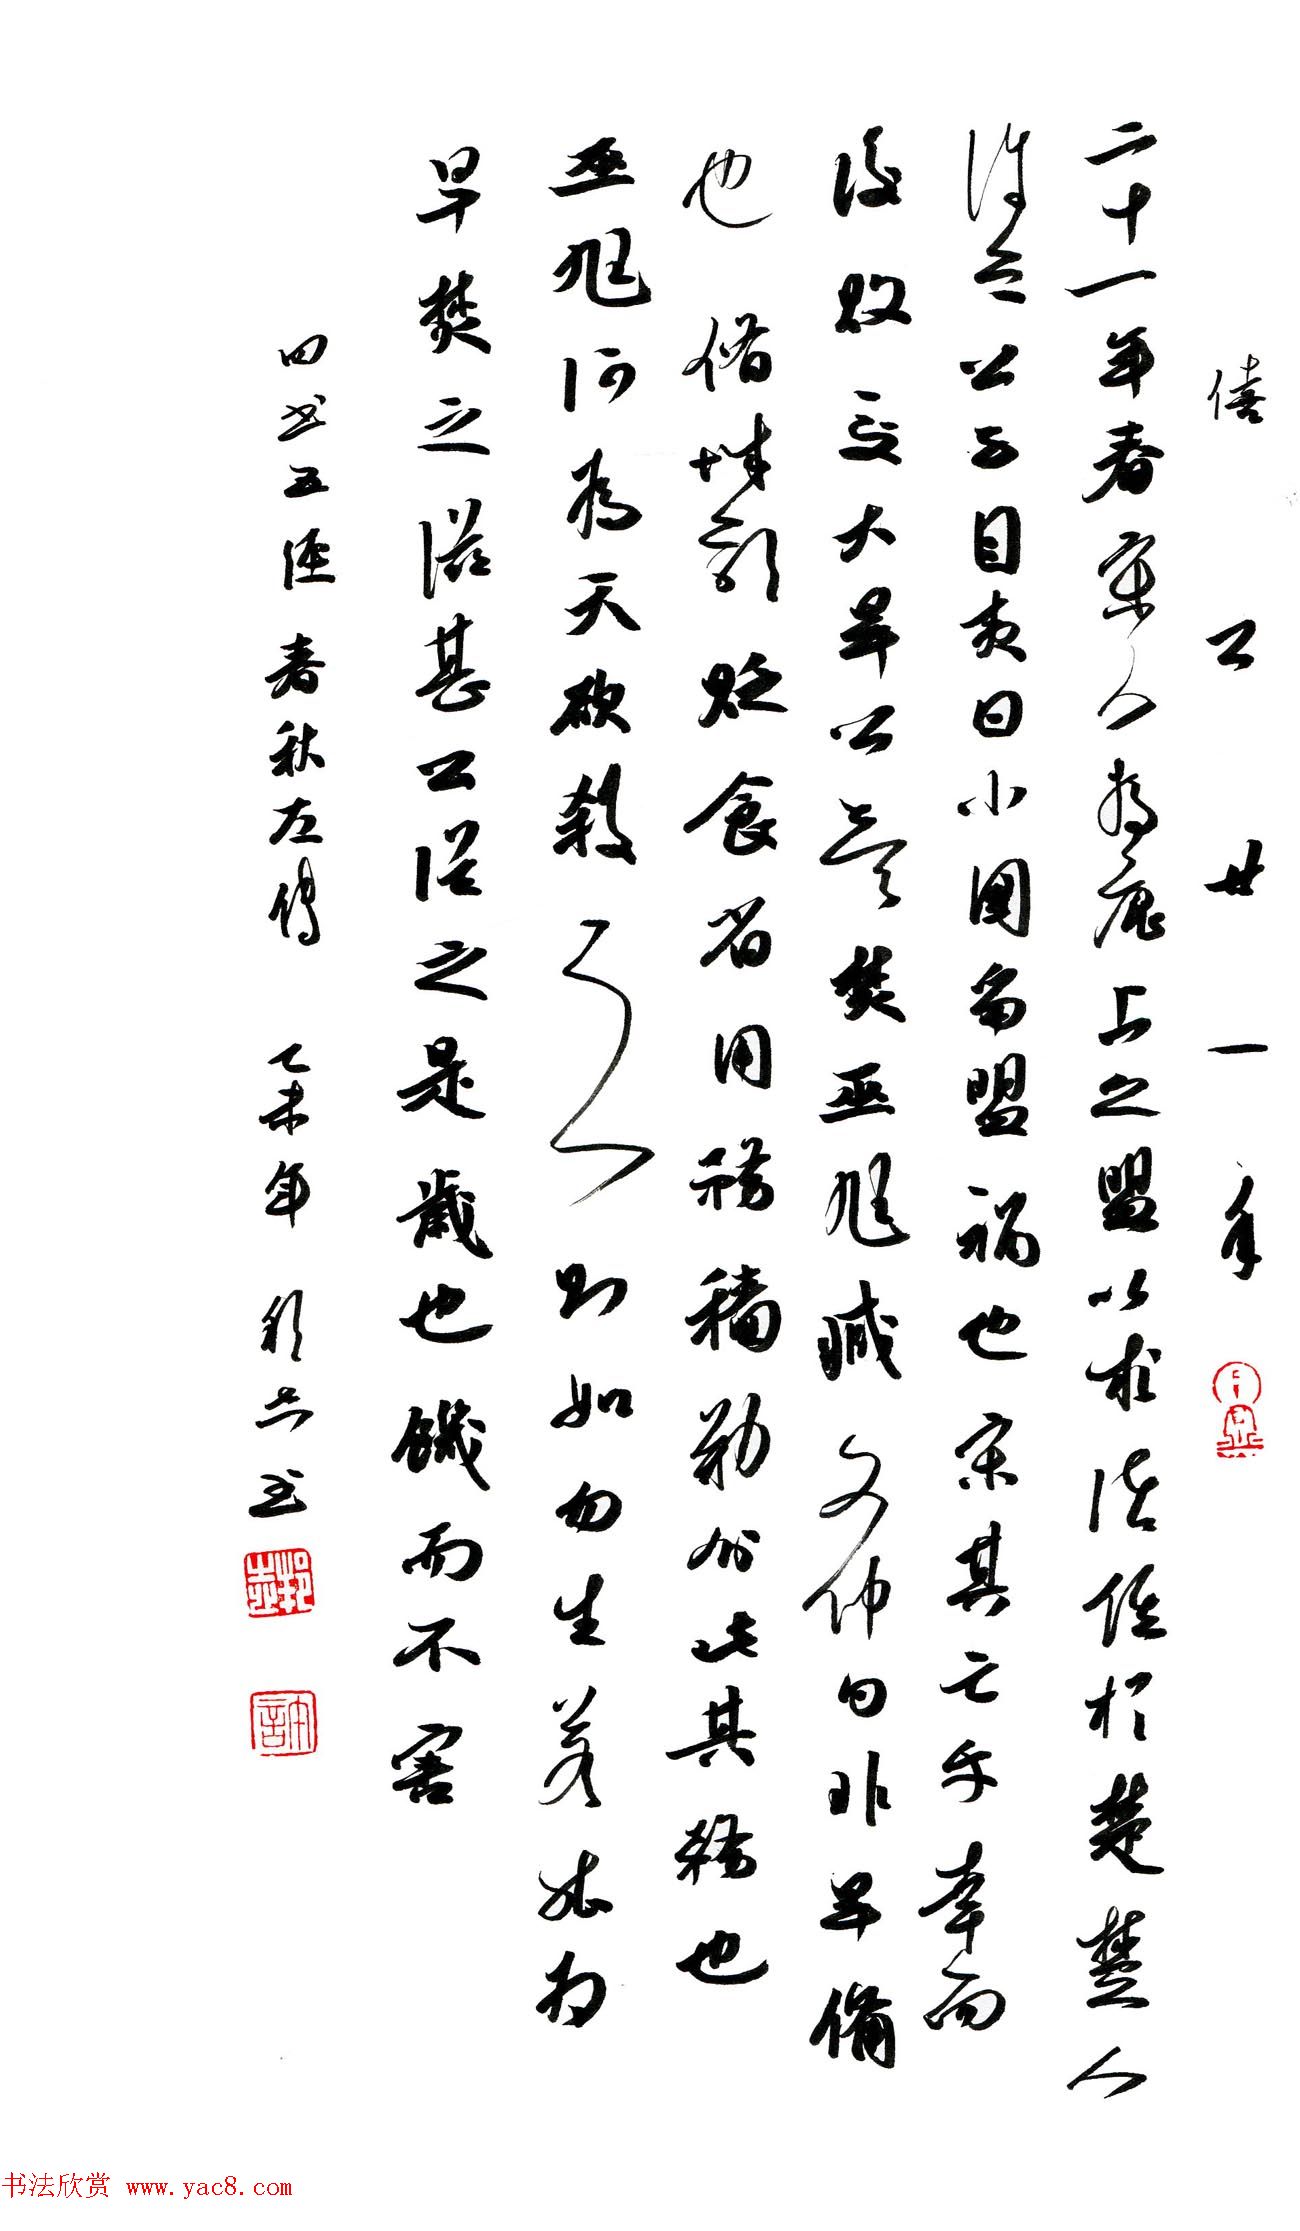 僖公廿一年
二十一年春宋人為鹿上之盟以求諸侯於楚楚人
許之公子目夷曰小國爭盟禍也宋其亡乎幸而
後敗 夏大旱公欲焚巫尪臧文仲曰非旱備
也 脩城郭貶食省用務穡勸分此其務也
巫尪何為天欲殺之則如勿生若能為
旱焚之滋甚公從之是歲也饑而不害
四书五經 春秋左傳 乙未年 邦志书
邦志
书法欣赏 www.yac8.com